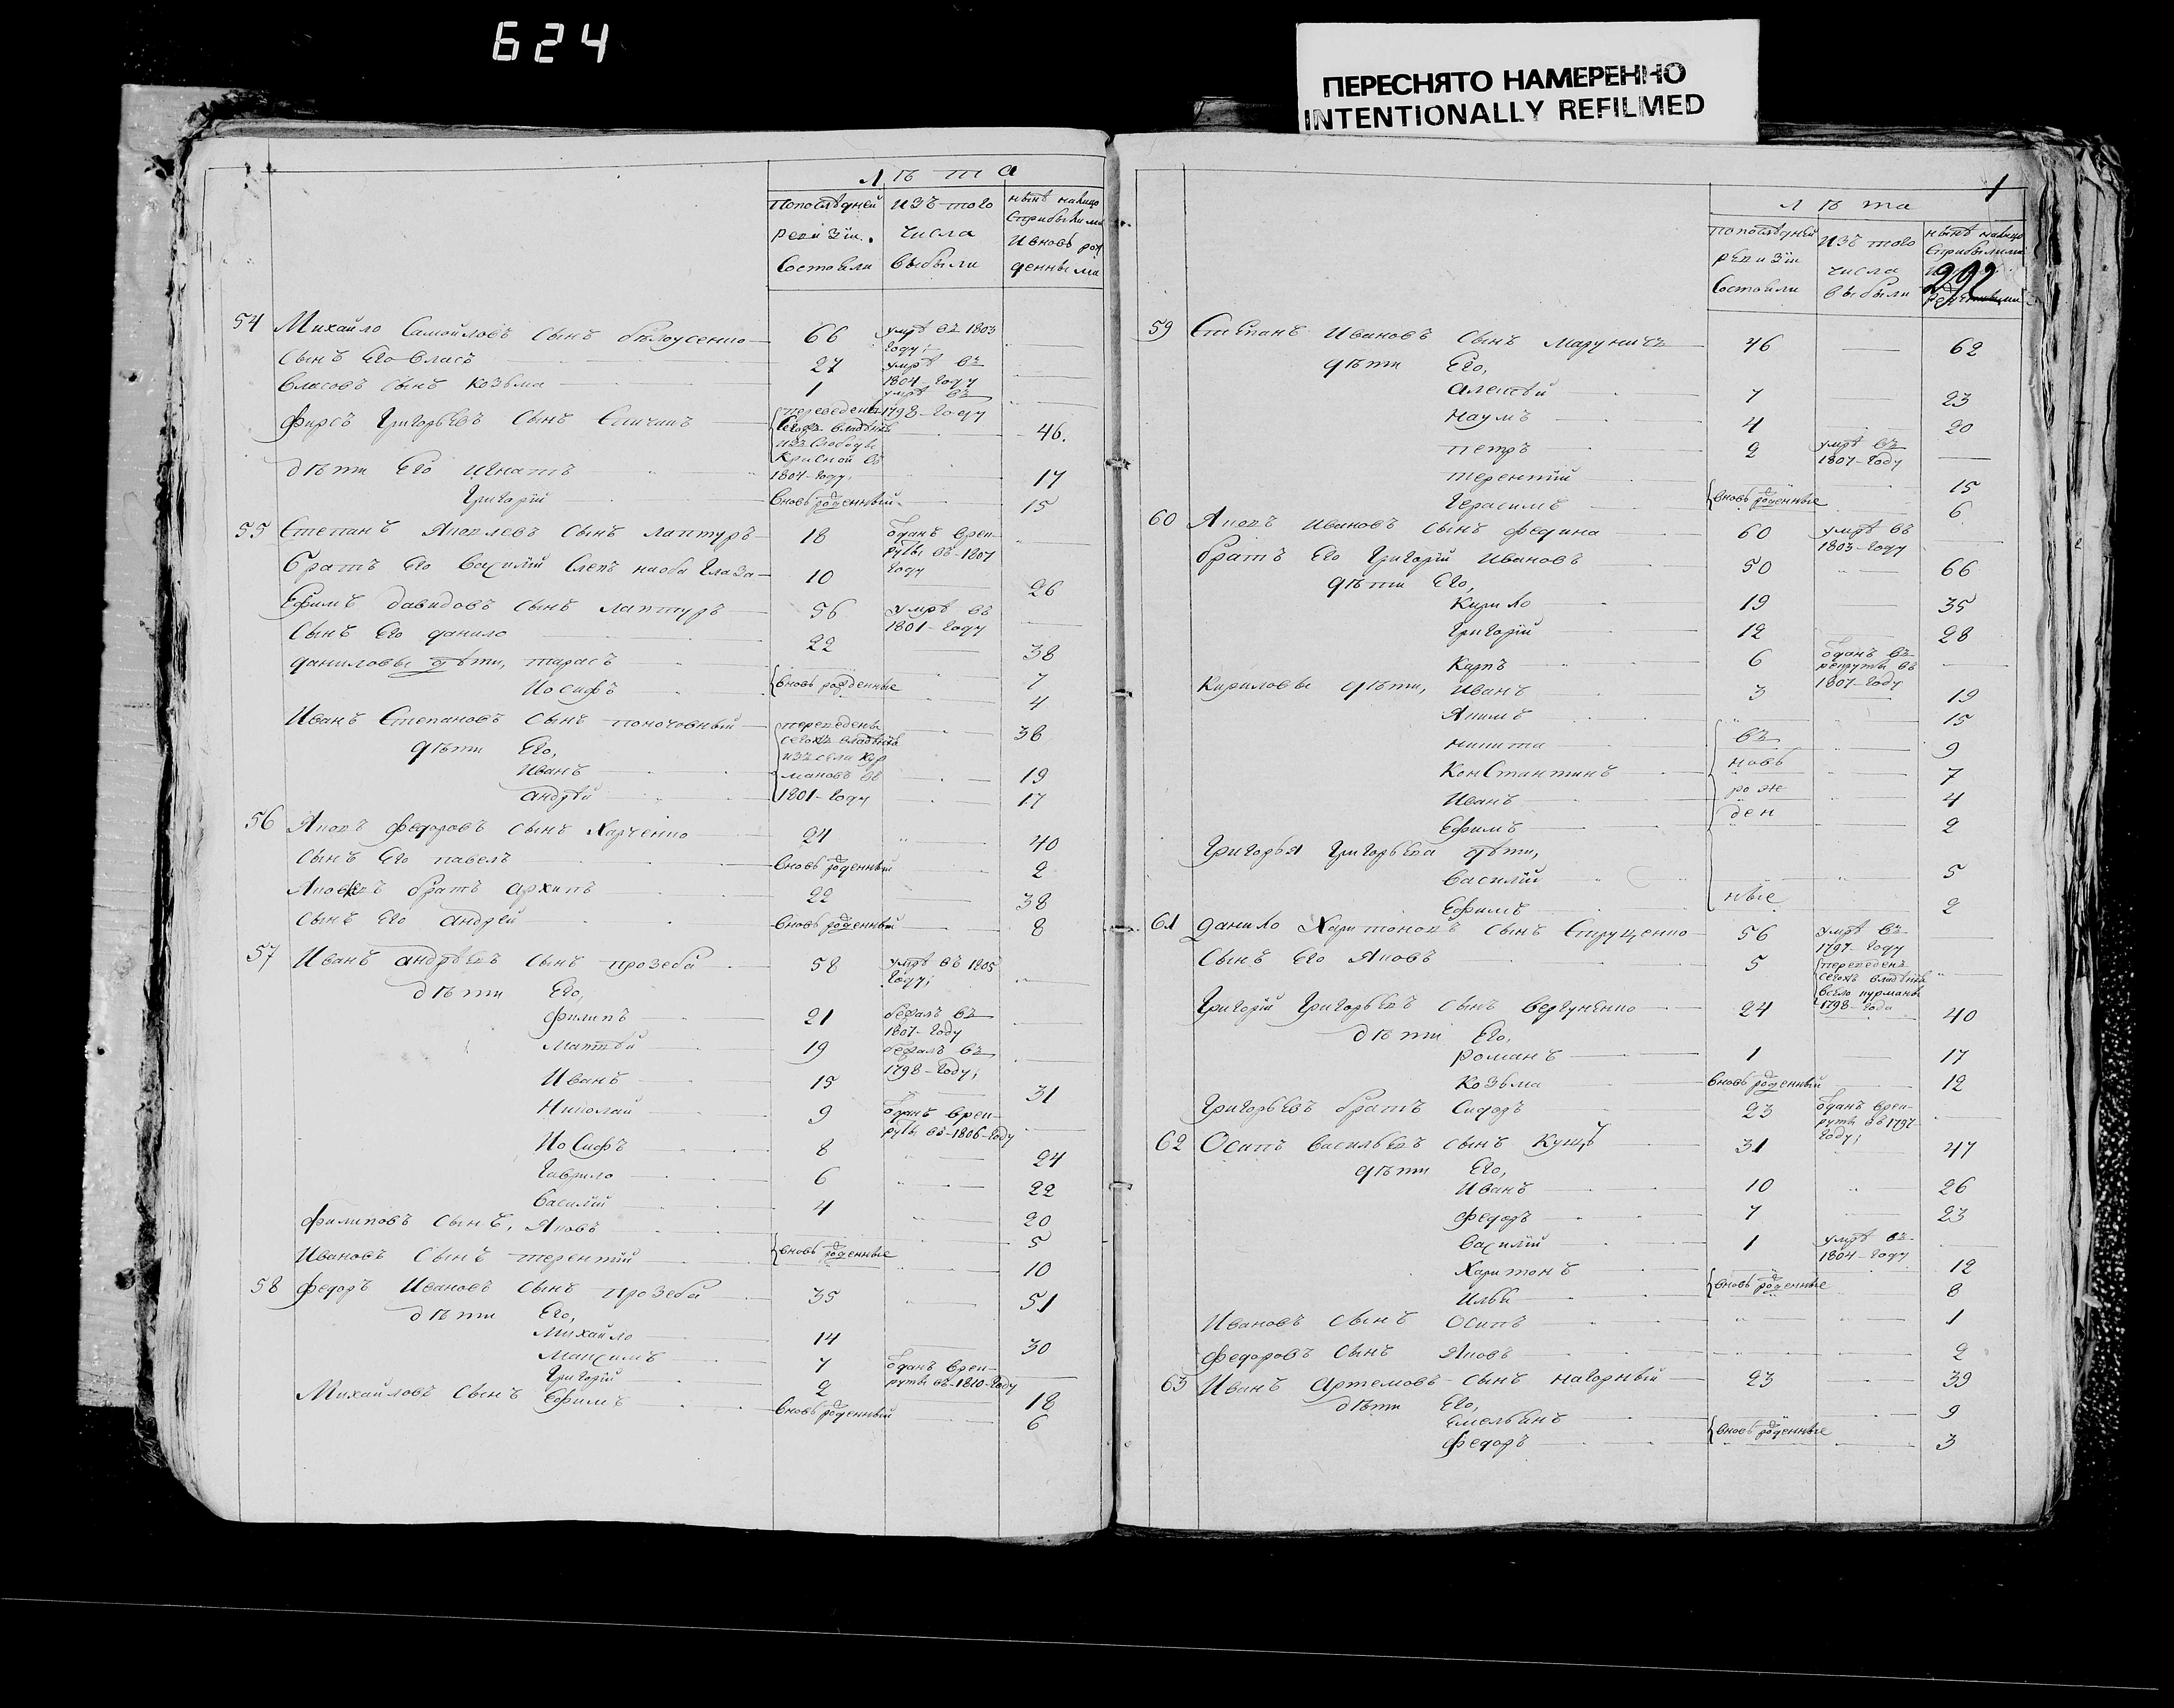 624
ПЕРЕСНЯТО НАМЕРЕННО
INTENTIONALLY REFILMED
Лѣта
По последней ревизiи состояли
изъ того числа выбыли
54 Михайло Самойловъ сынъ бѣлоусенко 66 умрѣ въ 1803 году;
сынъ его власъ 27 умрѣ въ 1804 году
власовъ сынъ козьма 1 умрѣ въ 1798 году
фирсъ Григорьевъ сынъ переведенъ изъ слободы красной въ 1804 году 46.
дѣти его игнатъ 17
григорiй вновь рожденный 15
55 Степанъ Яковлевъ сынъ лаптуръ 18 отданъ врекруты въ 1807 году
братъ его василiй слепъ наоба глаза 10 26
Ефимъ давидовъ сынъ лаптуръ 56 умрѣ въ 1801 году
сынъ его данило 22 38
даниловы дѣти, тарасъ 7
иосифъ вновь рожденные 4
Иванъ Степановъ сынъ переведены 1801 году 36
дѣти его,
иванъ 19
андрѣй 17
56 Яковъ федоровъ сынъ Харченко 24 40
сынъ его павелъ вновь рожденный 2
братъ архипъ 22 38
сынъ его андрей вновь рожденный 8
57 Иванъ андрѣевъ сынъ прозеба 58 умрѣ въ 1805 году;
дѣти его,
филипъ 21 бежалъ въ 1807 году
матвѣй 19 бежалъ въ 1798 году;
иванъ 15 31
николай 9 отданъ врекруты въ 1806 году
иосифъ 8 24
гаврило 6 22
василiй 4 20
филиповъ сынъ, яковъ 5
ивановъ сынъ терентiй вновь рожденные 10
58 федоръ ивановъ сынъ прозеба 35 51
дѣти его,
михайло 14 30
максимъ 7 отданъ врекруты въ 1810 году
григорiй 2 18
михайловъ сынъ ефимъ вновь рожденный 6
1
Лѣта
По последней ревизiи состояли
изъ того числа выбыли
292
59 Степанъ ивановъ сынъ 46 62
дѣти его,
алексѣй 7 23
наумъ 4 20
петръ 2 умрѣ въ 1807 году
терентiй 15
герасимъ вновь рожденные 6
60 Яковъ ивановъ сынъ федина 60 умрѣ въ 1803 году
братъ его григорiй ивановъ 50 66
дѣти его,
кирило 19 35
григорiй 12 28
карпъ 6 отданъ въ рекруты въ 1807 году
кириловы дѣти, иванъ 3 19
якимъ 15
никита 9
константинъ 7
иванъ 4
ефимъ 2
григорья григорьева дѣти,
василiй 5
ефимъ 2
въ новь рожденные
61 данило Харитоновъ сынъ 56 умрѣ въ 1797 году
сынъ его яковъ 5 переведенъ 1798 года
григорiй григорьевъ сынъ вергуненко 24 40
дѣти его,
романъ 1 17
козьма вновь рожденный 12
григорьевъ братъ сидоръ 23 отданъ врекруты въ 1797 году;
62 Осипъ васильевъ сынъ 31 47
дѣти его,
иванъ 10 26
федоръ 7 23
василiй 1 умрѣ въ 1804 году
харитонъ 12
илья вновь рожденные 8
ивановъ сынъ осипъ 1
федоровъ сынъ яковъ 2
63 иванъ артемовъ сынъ нагорный 23 39
дѣти его,
емельянъ 9
федоръ вновь рожденные 3